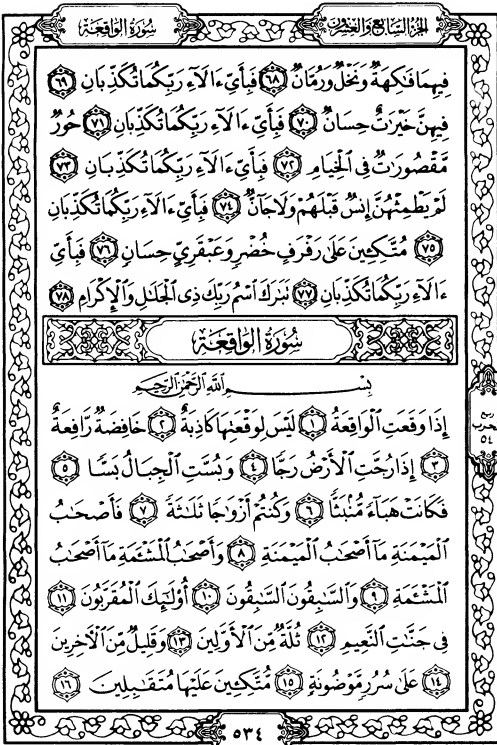 سُورَةُ الوَاقِعَة
الجُزءُ السَّابِعُ وَالعِشرُونَ
فِيهِمَا فَٰكِهَةٌ وَنَخْلٌ وَرُمَّانٌ ٦٨ فَبِأَيِّ ءَالَآءِ رَبِّكُمَا تُكَذِّبَانِ ٦٩
فِيهِنَّ خَيْرَٰتٌ حِسَانٌ ٧٠ فَبِأَيِّ ءَالَآءِ رَبِّكُمَا تُكَذِّبَانِ ٧١ حُورٌ
مَّقْصُورَٰتٌ فِى الْخِيَامِ ٧٢ فَبِأَيِّ ءَالَآءِ رَبِّكُمَا تُكَذِّبَانِ ٧٣
لَمْ يَطْمِثْهُنَّ إِنسٌ قَبْلَهُمْ وَلَا جَانٌّ ٧٤ فَبِأَيِّ ءَالَآءِ رَبِّكُمَا تُكَذِّبَانِ
٧٥ مُتَّكِـِٔينَ عَلَىٰ رَفْرَفٍ خُضْرٍ وَعَبْقَرِيٍّ حِسَانٍ ٧٦ فَبِأَيِّ
ءَالَآءِ رَبِّكُمَا تُكَذِّبَانِ ٧٧ تَبَٰرَكَ اسْمُ رَبِّكَ ذِى الْجَلَٰلِ وَالْإِكْرَامِ ٧٨
سُورَةُ الوَاقِعَة
بِسْمِ اللَّهِ الرَّحْمَٰنِ الرَّحِيمِ
إِذَا وَقَعَتِ الْوَاقِعَةُ ١ لَيْسَ لِوَقْعَتِهَا كَاذِبَةٌ ٢ خَافِضَةٌ رَّافِعَةٌ
٣ إِذَا رُجَّتِ الْأَرْضُ رَجًّا ٤ وَبُسَّتِ الْجِبَالُ بَسًّا ٥
فَكَانَتْ هَبَآءً مُّنۢبَثًّا ٦ وَكُنتُمْ أَزْوَٰجًا ثَلَٰثَةً ٧ فَأَصْحَٰبُ
الْمَيْمَنَةِ مَآ أَصْحَٰبُ الْمَيْمَنَةِ ٨ وَأَصْحَٰبُ الْمَشْـَٔمَةِ مَآ أَصْحَٰبُ
الْمَشْـَٔمَةِ ٩ وَالسَّٰبِقُونَ السَّٰبِقُونَ ١٠ أُو۟لَٰٓئِكَ الْمُقَرَّبُونَ ١١
فِى جَنَّٰتِ النَّعِيمِ ١٢ ثُلَّةٌ مِّنَ الْأَوَّلِينَ ١٣ وَقَلِيلٌ مِّنَ الْأَخِرِينَ
١٤ عَلَىٰ سُرُرٍ مَّوْضُونَةٍ ١٥ مُّتَّكِـِٔينَ عَلَيْهَا مُتَقَٰبِلِينَ ١٦
ربع
حزب
٥٤
٥٣٤